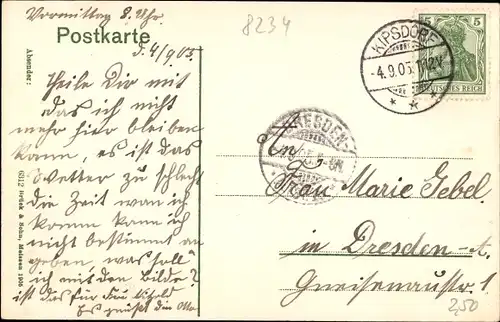 Vormittag 8. Uhr.
8234
Postkarte
d. 4/9 05.
Absender:
5
KIPSDORF
-4.9.05.11-12V.
DEUTSCHES REICH
Theile Dir mit
das ich nicht
mehr hier bleiben
kann, es ist das
Wetter zu schlecht
die Zeit wan ich
komm kann ich
nicht bestimmt an
geben, was soll
ich mit den Bilde?
ist das für Frau
Es grüßt die
6312 Brück & Sohn, Meissen 1905
DRESDEN
An
Frau Marie Gebel.
in Dresden-A.
Gneisenaustr. 1.
2,50